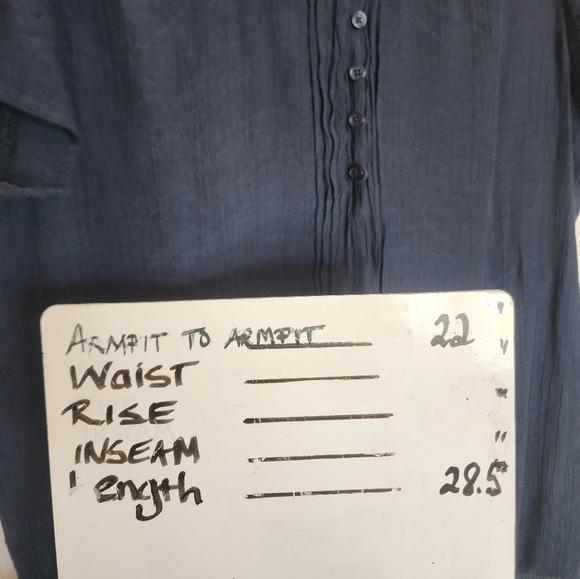 ARMPIT TO ARMPIT 22"
Waist "
RISE "
INSEAM "
Length 28.5"